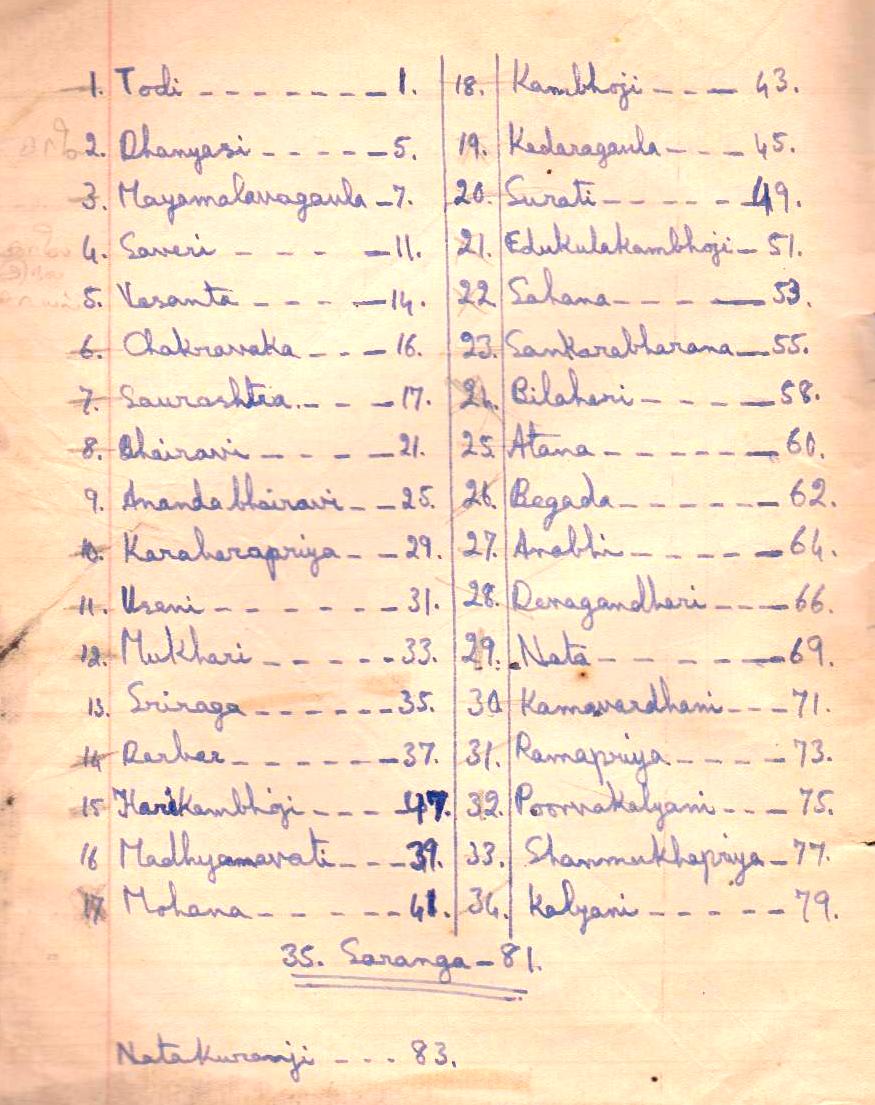 1. Todi - - - - - - - - 1.
2. Dhanyasi - - - - - 5.
3. Mayamalavagaula - 7.
4. Saveri - - - - 11.
5. Vasanta - - - - 14.
6. Chakravaka - - - 16.
7. Saurashtra - - - - 17.
8. Bhairavi - - - - - 21.
9. Ananda bhairavi - - - 25.
10. Karaharapriya - - - 29.
11. Usani - - - - - - 31.
12. Mukhari - - - - - - 33.
13. Sriraga - - - - - - 35.
14 Darbar - - - - - - 37.
15 Harikambhoji - - - - 47.
16 Madhyamavati - - - 39.
17 Mohana - - - - - - 41.
18. Kambhoji - - - 43.
19. Kedaragaula - - - 45.
20. Surati - - - - - - 49.
21. Edukulakambhoji - 51.
22 Sahana - - - - 53.
23. Sankarabharana - 55.
24. Bilahari - - - - 58.
25. Atana - - - - - - 60.
26. Begada - - - - - - 62.
27. Arabhi - - - - - 64.
28. Devagandhari - - - 66.
29. Nata - - - - - - 69.
30 Kamavardhani - - - 71.
31. Ramapriya - - - - - 73.
32. Poorvakalyani - - - 75.
33. Shanmukhapriya - 77.
34. Kalyani - - - - - 79.
35. Saranga - 81.
Natakuranji - - - 83.